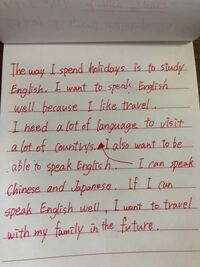 The way I spend holidays is to study
English. I want to speak English
well because I like travel.
I need a lot of language to visit
a lot of countrys. I also want to be
able to speak English. I can speak
Chinese and Japanese. If I can
speak English well, I want to travel
with my family in the future.